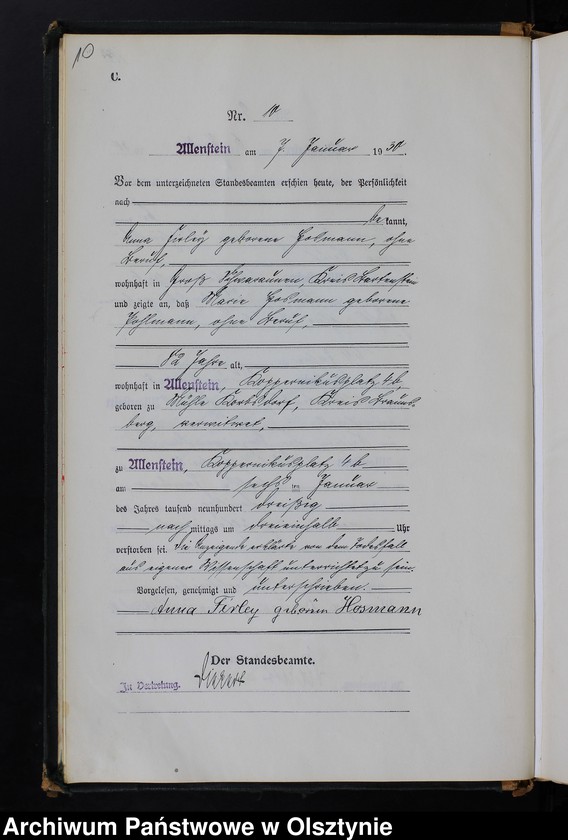 10
C.
Nr. 10
Allenstein am 7. Januar 1930.
Vor dem unterzeichneten Standesbeamten erschien heute, der Persönlichkeit
nach
be kannt,
Anna Firley geborene Hosmann, ohne
Beruf,
wohnhaft in Groß Schwaraunen, Kreis Bartenstein
und zeigte an, daß Marie Hosmann geborene
Pohlmann, ohne Beruf,
82 Jahre alt,
wohnhaft in Allenstein, Koppernikusplatz 4b,
geboren zu Mühle Korbsdorf, Kreis Brauns-
berg, verwitwet,
zu Allenstein, Koppernikusplatz 4b
am sechs ten Januar
des Jahres tausend neunhundert dreißig
nach mittags um dreieinhalb Uhr
verstorben sei. Die Anzeigende erklärte von dem Todesfall
aus eigener Wissenschaft unterrichtet zu sein.
Vorgelesen, genehmigt und unterschrieben.
Anna Firley geboren Hosmann
Der Standesbeamte.
In Vertretung.
Archiwum Państwowe w Olsztynie